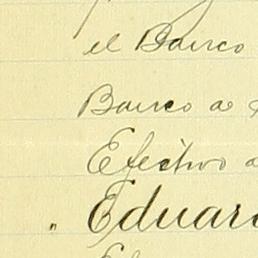 el Banco
Banco de
Efectivo a
" Eduard